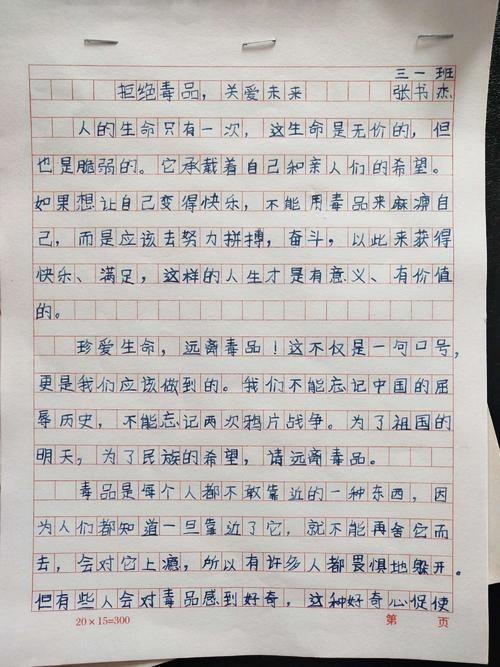 三一班
拒绝毒品，关爱未来 张书杰
人的生命只有一次，这生命是无价的，但
也是脆弱的。它承载着自己和亲人们的希望。
如果想让自己变得快乐，不能用毒品来麻痹自
己，而是应该去努力拼搏，奋斗，以此来获得
快乐、满足，这样的人生才是有意义、有价值
的。
珍爱生命，远离毒品！这不仅是一句口号，
更是我们应该做到的。我们不能忘记中国的屈
辱历史，不能忘记两次鸦片战争。为了祖国的
明天，为了民族的希望，请远离毒品。
毒品是每个人都不敢靠近的一种东西，因
为人们都知道一旦靠近了它，就不能再舍它而
去，会对它上瘾，所以有许多人都畏惧地躲开。
但有些人会对毒品感到好奇，这种好奇心促使
20×15=300 第 页